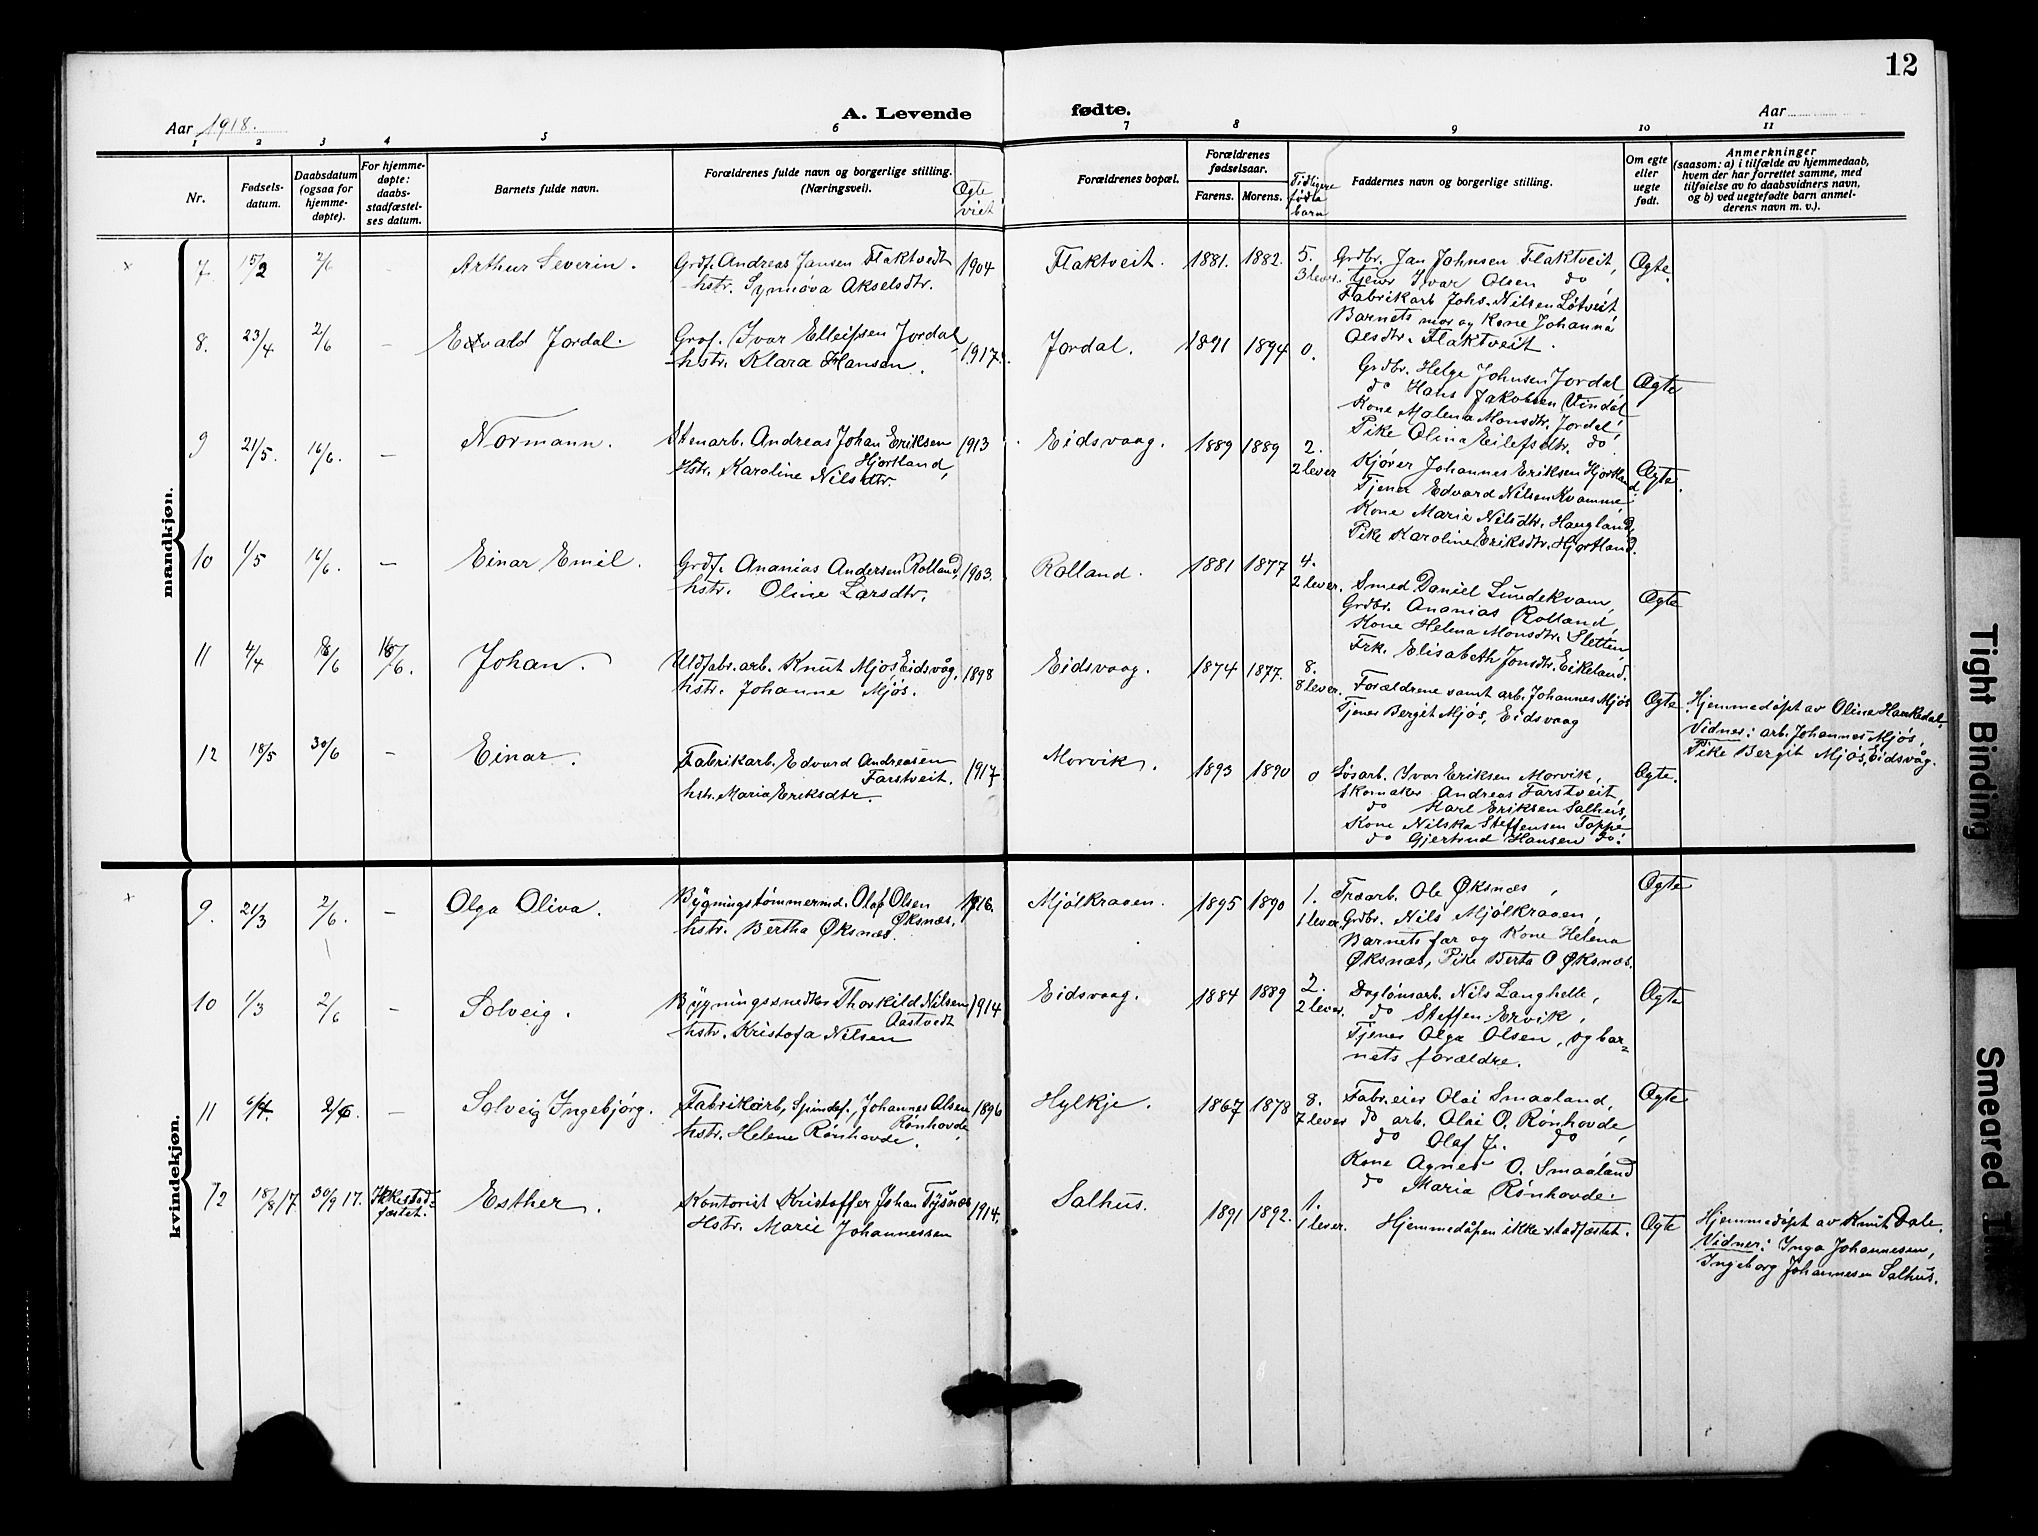 12
A. Levende fødte.
Aar 1918.
Aar
1 2 3 4 5 6 7 8 9 10 11
Nr.
Fødsels-
datum.
Daabsdatum
(ogsaa for
hjemme-
døpte).
For hjemme-
døpte:
daabs-
stadfæstel-
ses datum.
Barnets fulde navn.
Forældrenes fulde navn og borgerlige stilling.
(Næringsvei).
Ægte
viet
Forældrenes bopæl.
Forældrenes
fødselsaar.
Farens. Morens.
Tidligere
fødte
barn
Faddernes navn og borgerlige stilling.
Om egte
eller
uegte
født.
Anmerkninger
(saasom: a) i tilfælde av hjemmedaab,
hvem der har forrettet samme, med
tilføielse av to daabsvidners navn,
og b) ved uegtefødte barn anmel-
derens navn m. v.).
mandkjøn.
7. 15/2 2/6 - Arthur Severin.
Grdf. Andreas Jansen Flaktvedt
hstr. Synnøva Akselsdtr.
1904 Flaktveit. 1881. 1882. 5.
3 lever.
Grdbr. Jan Johnsen Flaktveit,
tjener Ivar Olsen do
Fabrikarb Johs. Nilsen Løtveit
Barnets mor og Kone Johanna
Olsdtr. Flaktveit.
Ægte.
8. 23/4 2/6 - Edvald Jordal.
Grdf. Ivar Elleifsen Jordal
hstr. Klara Hansen.
1917. Jordal. 1891 1894 0.
Grdbr. Helge Johnsen Jordal
do Hans Jakobsen Vindal
Kone Malena Monsdtr. Jordal,
Pike Olina Eilefsdtr. do.
Ægte
9 21/5. 16/6. - Normann.
Stenarb. Andreas Johan Eriksen
Hjortland,
Hstr. Karoline Nilsdtr.
1913 Eidsvaag. 1889 1889 2.
2 lever
Kjører Johannes Eriksen Hjortland.
Tjener Edvard Nilsen Kvamme
Kone Marie Nilsdtr. Haugland,
Pike Karoline Eriksdtr. Hjortland.
Ægte.
10 1/5 16/6. - Einar Emil.
Grdf. Ananias Andersen Rolland,
hstr. Oline Larsdtr.
1903. Rolland. 1881 1877 4.
2 lever.
Smed Daniel Lundekvam,
Grdbr. Ananias Rolland,
Kone Helena Monsdtr. Sletten,
Frk. Elisabeth Jonsdtr. Eikeland.
Ægte
11 4/4 /6 /6. Johan.
Uldfabr.arb. Knut Mjøs Eidsvåg.
hstr. Johanne Mjøs.
1898 Eidsvaag. 1874 1877. 8.
8 lever.
Forældrene samt arb. Johannes Mjøs
Tjenes Bergit Mjøs, Eidsvaag
Ægte
Hjemmedøpt av Oline Haukedal.
Vidner: arb. Johannes Mjøs,
Pike Bergit Mjøs, Eidsvåg.
12 18/5 30/6 - Einar.
Fabrikarb. Edvard Andreasen
Farstveit.
hstr. Maria Eriksdtr.
1917 Morvik. 1893 1890 0
Løsarb. Ivar Eriksen Morvik,
Skomaker Andreas Farstveit
do Karl Eriksen Salhus,
Kone Nilska Steffensen Toppe
do Gjertrud Hansen do.
Ægte.
kvindekjøn.
9. 21/3 2/6. - Olga Oliva.
Bygningstømmermd. Olaf Olsen
Øksnæs.
hstr. Bertha Øksnæs.
1916. Mjølkraaen. 1895 1890 1.
1 lever.
Træarb. Ole Øksnæs,
Grdbr. Nils Mjølkraaen,
Barnets far og Kone Helena
Øksnæs, Pike Berta O. Øksnæs.
Ægte
10 1/3 2/6 - Solveig.
Bygningssnedker Thorkild Nilsen
Aastvedt
hstr. Kristofa Nilsen
1914 Eidsvaag. 1884 1889 2.
2 lever
Daglønsarb. Nils Langhelle,
do Steffen Ervik,
Tjenes Olga Olsen, og bar=
nets forældre.
Ægte
11 6/4. 2/6 - Solveig Ingebjørg.
Fabrikarb, Spindef. Johannes Olsen
Rønhovde,
hstr. Helene Rønhovde.
1896 Hylkje. 1867 1878 8.
7 lever
Fabr.eier Olai Smaaland,
do arb. Olai O. Rønhovde,
do Olaf J. do
Kone Agnes O. Smaaland
do Maria Rønhovde.
Ægte
12 18/8 17 30/9 17. Ikke stad=
fæstet. Esther.
Kontorist Kristoffer Johan Tysnæs
Hstr. Marie Johannessen
1914. Salhus. 1891 1892. 1.
1 lever.
Hjemmedåpen ikke stadfæstet.
Ægte
Hjemmedøpt av Knut Dale.
Vidner: Inga Johannesen,
Ingeborg Johannesen Salhus.
Tight Binding
Smeared